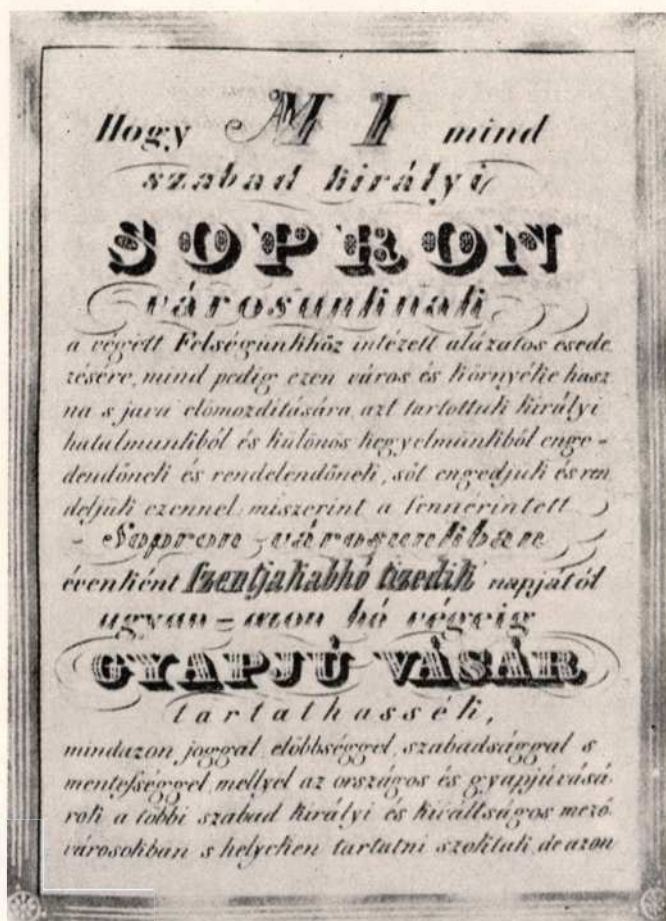 Hogy MI mind
szabad királyi
SOPRON
városunknak
a végett Felségunkhöz intézett alázatos esede
zésére, mind pedig ezen város és környéke hasz
na s java elömozditására, azt tartottuk királyi
hatalmunkból és különös kegyelmünkből enge-
dendőnek és rendelendőnek, sőt engedjük és ren
deljük ezennel, miszerint a fennérintett
Sopron városunkban
évenként Szentjakabhó tizedik napjától
ugyan-azon hó végeig
GYAPJÚ VÁSÁR
tartathassék,
mindazon joggal, előbbséggel, szabadsággal s
menteſséggel mellyel az országos és gyapjúvásá
rok a többi szabad királyi és kiváltságos mező
városokban s helyeken tartatni szoktak, de azon